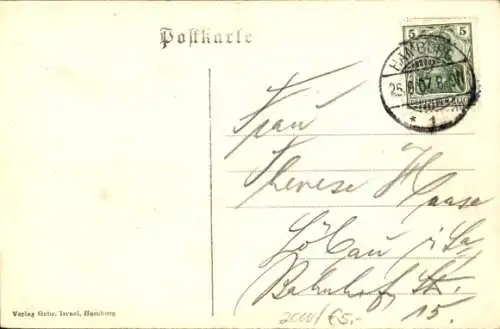 Postkarte
5 5
HAMBURG
25.8.07.
* 1
Frau
Therese Haase
Löbau i/Sa
Bahnhof Str.
15.
Verlag Gebr. Israel, Hamburg
€5.-